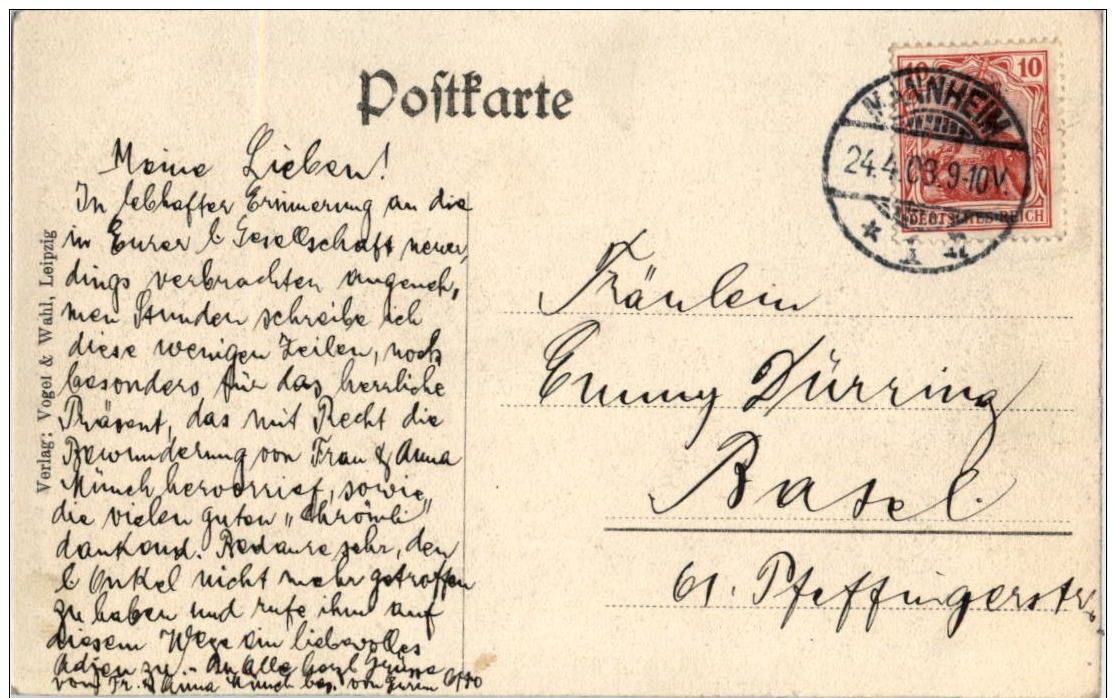 Postkarte
10 10
MANNHEIM
24.4.08.9-10V.
* 1 *
DEUTSCHES REICH
Verlag: Vogel & Wahl, Leipzig
Meine Lieben!
In lebhafter Erinnerung an die
in Eurer l Gesellschaft neuer,
dings verbrachten angeneh,
men Stunden schreibe ich
diese wenigen Zeilen, noch
besonders für das herrliche
Präsent, das mit Recht die
Bewunderung von Frau & Anna
Münch hervorrief, sowie
die vielen guten „Chrömli"
dankend. Bedaure sehr, den
l Onkel nicht mehr getroffen
zu haben und rufe ihm auf
diesem Wege ein liebevolles
Adieu zu. - An Alle herzl Grüsse
von Fr. & Anna Münch bes. von Eurem Otto
Fräulein
Emmy Dürring
Basel
61. Pfeffingerstr.